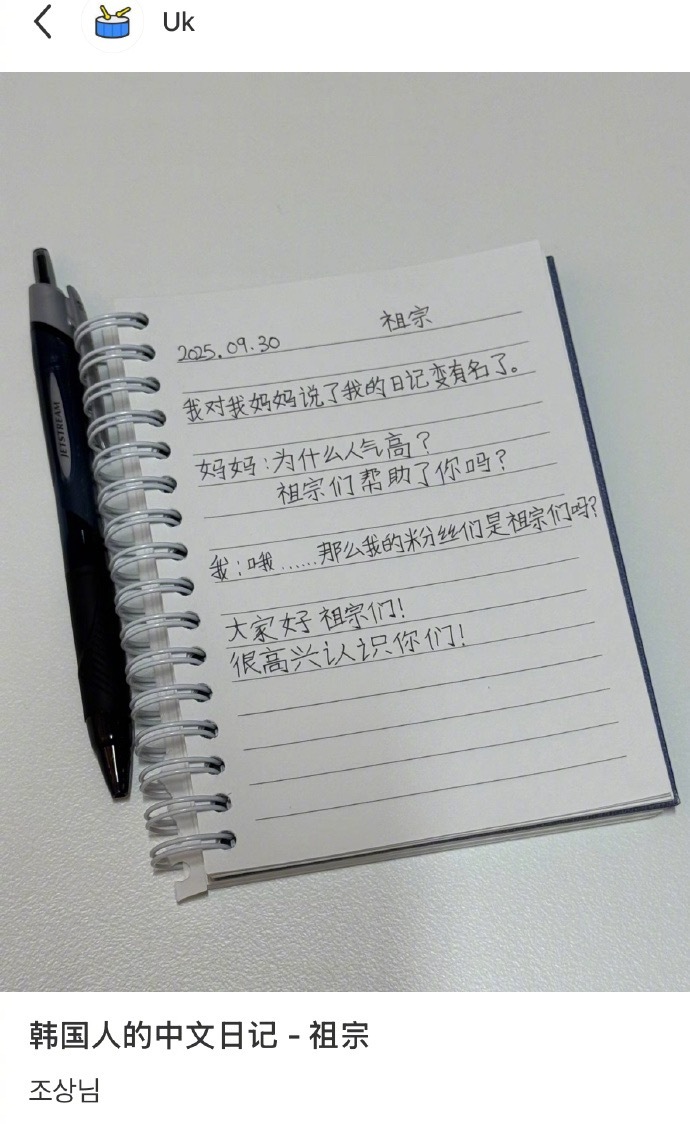 Uk
2025.09.30 祖宗
我对我妈妈说了我的日记变有名了。
妈妈:为什么人气高?
祖宗们帮助了你吗?
我:哦……那么我的粉丝们是祖宗们吗?
大家好 祖宗们!
很高兴认识你们!
JETSTREAM
韩国人的中文日记 - 祖宗
조상님